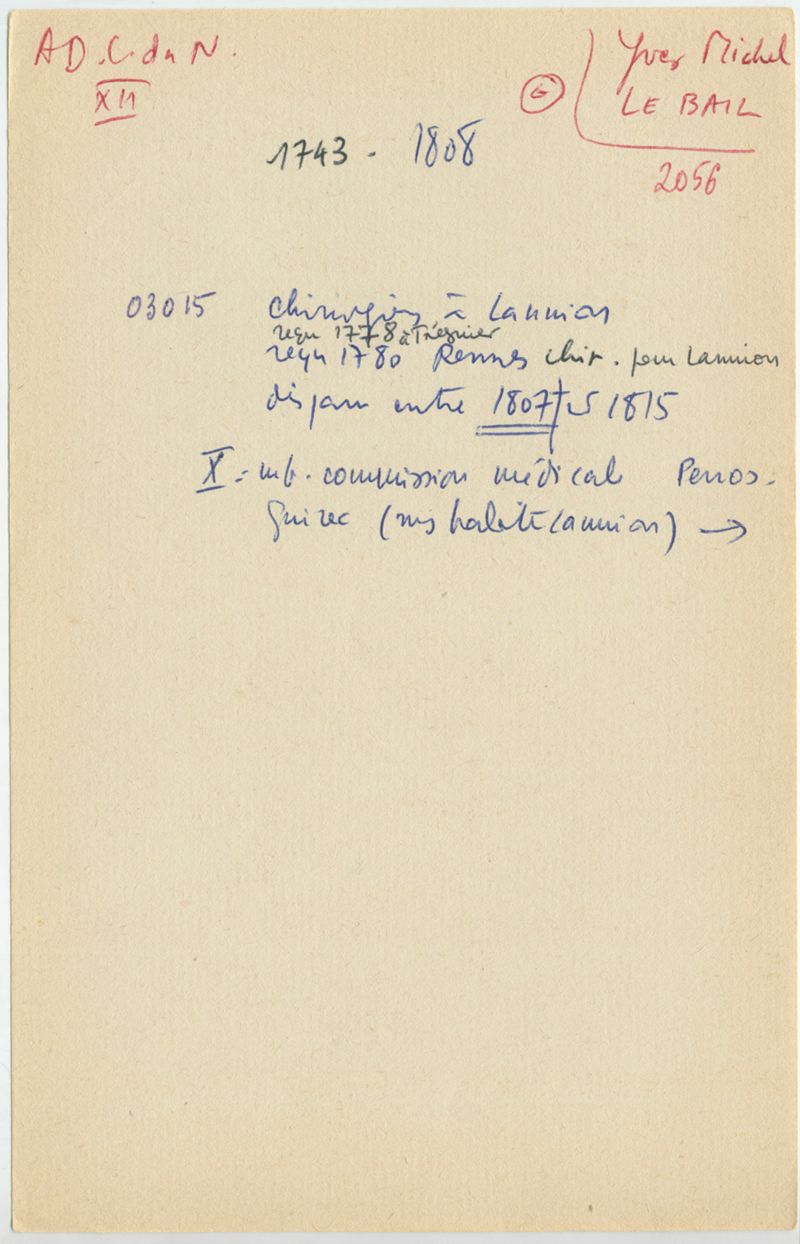 AD. C. du N.
XII
G
Yves Michel
LE BAIL
2056
1743 - 1808
03015 chirurgien à Lannion
reçu 1778 à Tréguier
reçu 1780 Rennes chir. pour Lannion
disparu entre 1807 et 1815
X :- mb. commission médicale Perros-
Guirec (Lannion) →